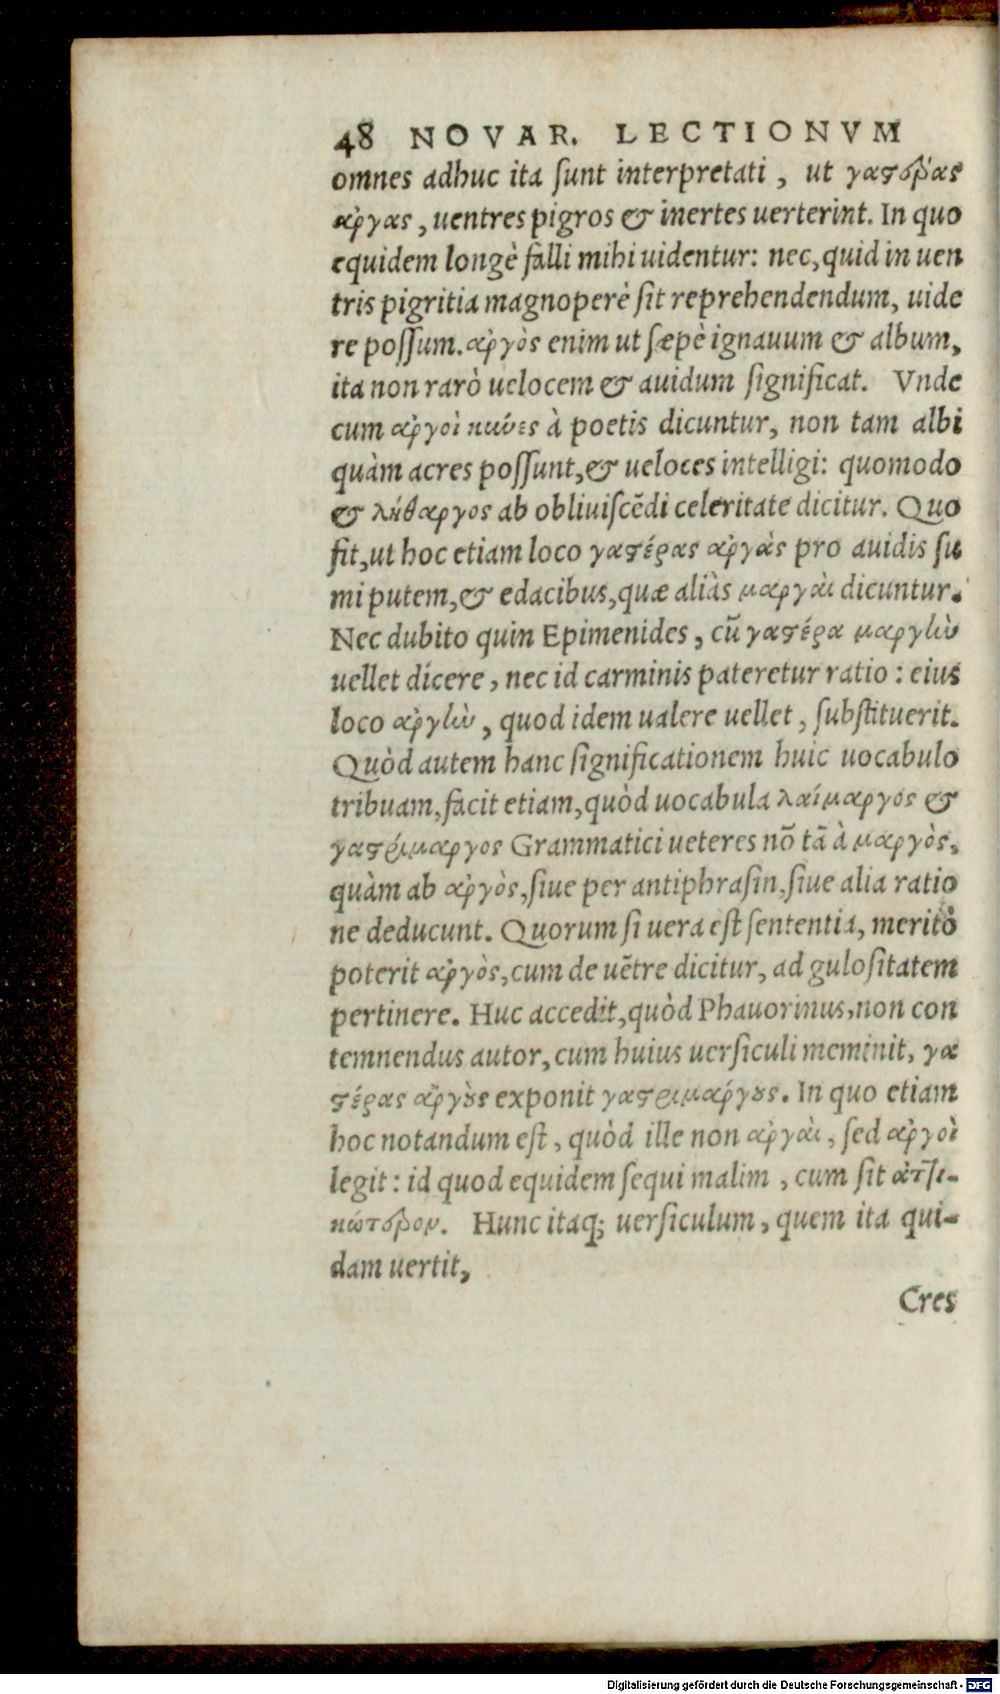 48 NOVAR. LECTIONVM
omnes adhuc ita sunt interpretati, ut γαστέρας
ἀργας, uentres pigros & inertes uerterint. In quo
equidem longè falli mihi uidentur: nec, quid in uen
tris pigritia magnoperè sit reprehendendum, uide
re possum. ἀργὸς enim ut sæpè ignauum & album,
ita non rarò uelocem & auidum significat. Vnde
cum ἀργοὶ κύνες à poetis dicuntur, non tam albi
quàm acres possunt, & ueloces intelligi: quomodo
& λήθαργος ab obliuiscēdi celeritate dicitur. Quo
fit, ut hoc etiam loco γαστέρας ἀργὰς pro auidis su
mi putem, & edacibus, quæ aliàs μαργὰι dicuntur.
Nec dubito quin Epimenides, cū γαστέρα μαργὼ
uellet dicere, nec id carminis pateretur ratio: eius
loco ἀργὼ, quod idem ualere uellet, substituerit.
Quòd autem hanc significationem huic uocabulo
tribuam, facit etiam, quòd uocabula λαίμαργος &
γαστρίμαργος Grammatici ueteres nō tā à μαργὸς,
quàm ab ἀργὸς, siue per antiphrasin, siue alia ratio
ne deducunt. Quorum si uera est sententia, meritò
poterit ἀργὸς, cum de uētre dicitur, ad gulositatem
pertinere. Huc accedit, quòd Phauorinus, non con
temnendus autor, cum huius uersiculi meminit, γα
στέρας ἀργοὺς exponit γαστριμάργους. In quo etiam
hoc notandum est, quòd ille non ἀργὰι, sed ἀργοὶ
legit: id quod equidem sequi malim, cum sit ἀττι-
κώτερον. Hunc itaq; uersiculum, quem ita qui-
dam uertit,
Cres
Digitalisierung gefördert durch die Deutsche Forschungsgemeinschaft - DFG